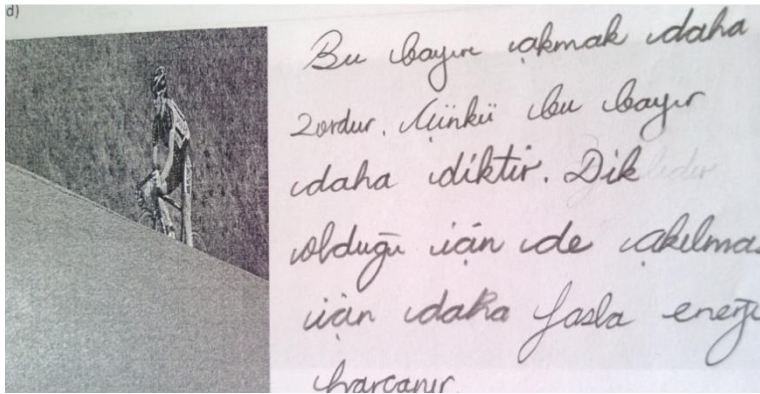 d)
Bu bayırı çıkmak daha
zordur. Çünkü bu bayır
daha diktir. Dik
olduğu için de çıkılması
için daha fazla enerji
harcanır.